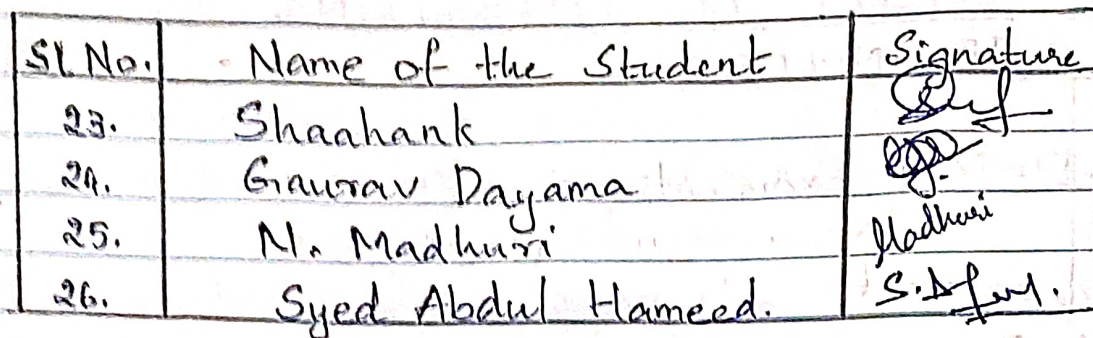 Sl. No. Name of the Student Signature
23. Shaahank
24. Gaurav Dayama
25. M. Madhuri Madhuri
26. Syed Abdul Hameed.